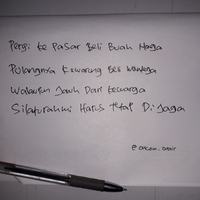 Pergi ke Pasar Beli Buah Naga
Pulangnya Kewarung Beli
Walaupun Jauh Dari keluarga
Silaturahmi Harus Tetap Di Jaga